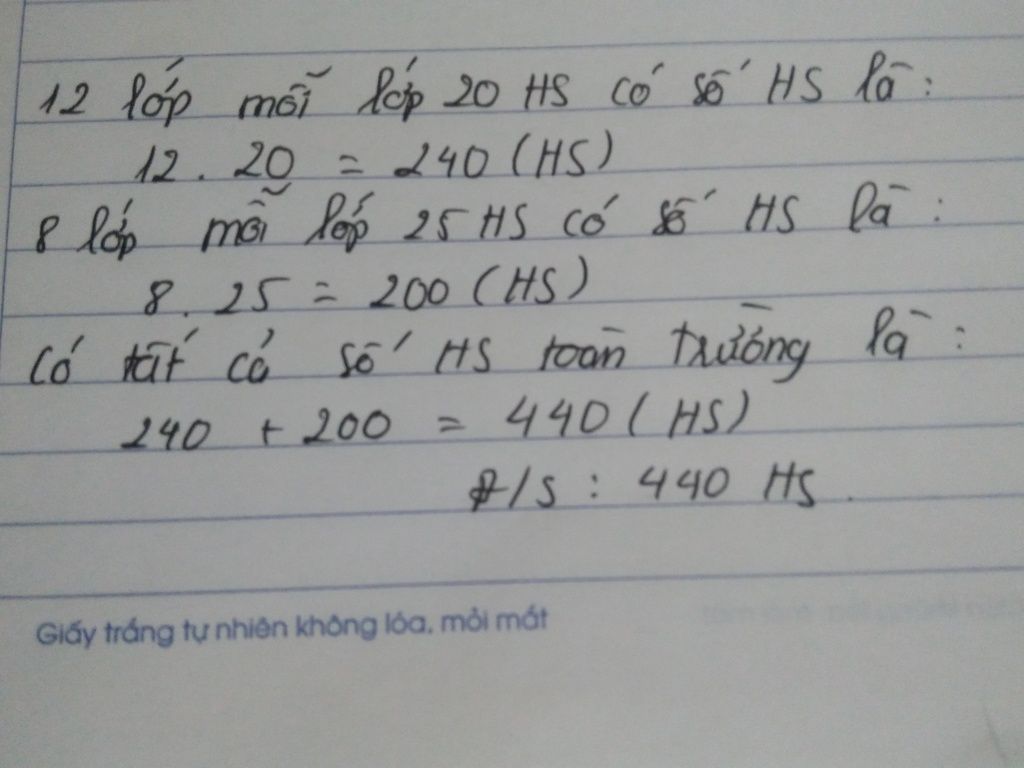 12 lớp mỗi lớp 20 HS có số HS là :
12 . 20 = 240 (HS)
8 lớp mỗi lớp 25 HS có số HS là :
8 . 25 = 200 (HS)
Có tất cả số HS toàn trường là :
240 + 200 = 440 (HS)
Đ/S : 440 HS.
Giấy trắng tự nhiên không lóa, mỏi mắt